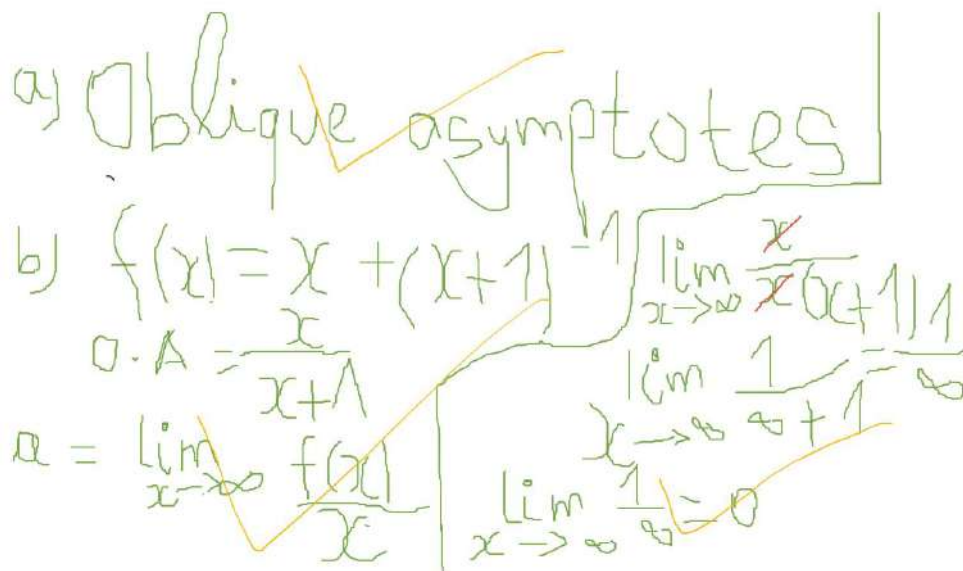 a) Oblique asymptotes
b) f(x) = x + (x+1)^-1
O.A = x/(x+1)
a = lim x→∞ f(x)/x
lim x→∞ x/(x(x+1))
lim x→∞ 1/(∞+1) = 1/∞
lim x→∞ 1/∞ = 0